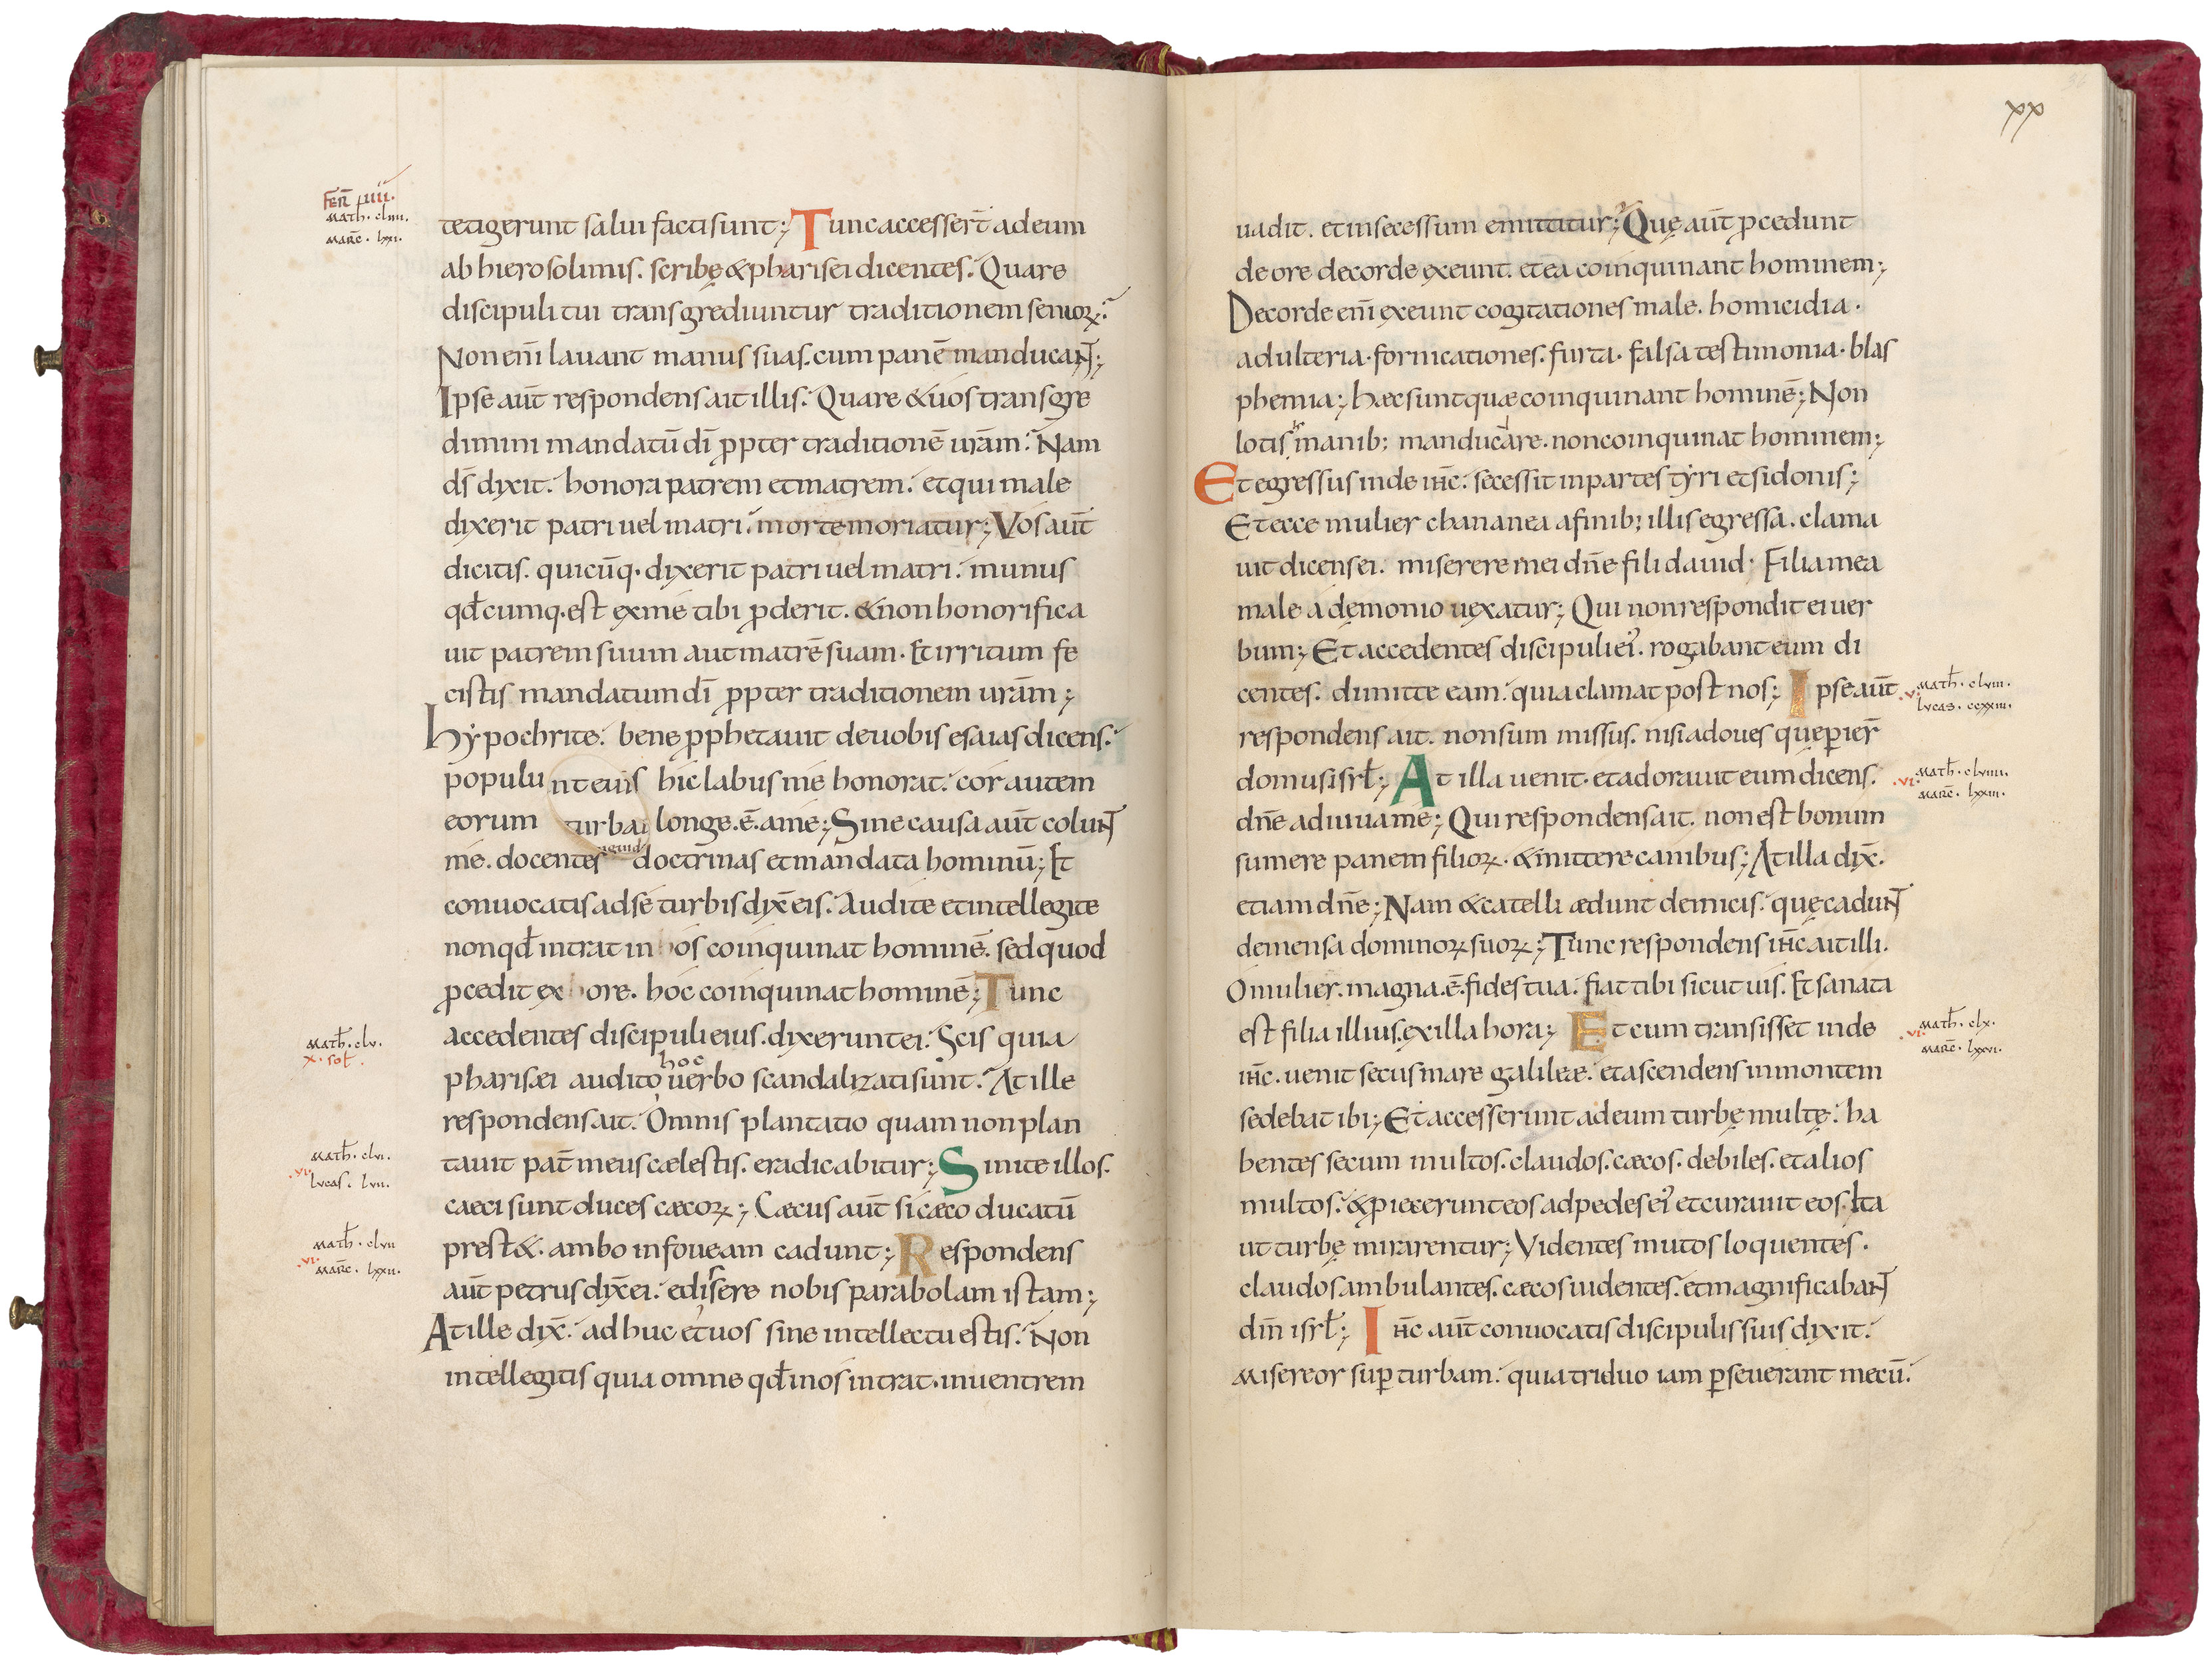 FER̄ IIII.
Math. cliiii.
Marc̄. lxxi.
tetigerunt salui facti sunt; Tunc accesser̄t ad eum
ab hierosolimis. scribę & pharisei dicentes. Quare
discipuli tui transgrediuntur traditionem senioꝝ.
Non enī lauant manus suas. cum panē manducant;
Ipse aūt respondens ait illis. Quare & uos transgre
dimini mandatū dī ꝓpter traditionē urām. Nam
ds̄ dixit. honora patrem et matrem. et qui male
dixerit patri uel matri. morte moriatur; Vos aūt
dicitis. quicūq. dixerit patri uel matri. munus
qđcumq. est ex me tibi ꝓderit. & non honorifica
uit patrem suum aut matrē suam. Et irritum fe
cistis mandatum dī ꝓpter traditionem urām;
hypochrite. bene ꝓphetauit de uobis esaias dicens.
populu nt eius hic labus me honorat. cor autem
eorum turbai longe .ē. a me; Sine causa aūt colunt
me. docentes doctrinas et mandata hominū; Et
conuocatis ad se turbis dix̄ eis. Audite et intellegite
non qđ intrat in os coinquinat hominē. sed quod
ꝓcedit ex ore. hoc coinquinat hominē; Tunc
accedentes discipuli eius. dixerunt ei. Scis quia
Math. clv.
X. sol.
hoc
pharisæi audito uerbo scandalizati sunt. At ille
respondens ait. Omnis plantatio quam non plan
tauit pat̄ meus cælestis. eradicabitur; Sinite illos.
Math. clvi.
.vi.
Lucas. lvii.
caeci sunt duces cæcoꝝ; Cæcus aūt si cæco ducatū
prest&. ambo in foueam cadunt; Respondens
Math. clvii
.vi.
Marc̄. lxxii.
aūt petrus dix̄ ei. edissere nobis parabolam istam;
At ille dix̄. adhuc et uos sine intellectu estis. Non
intellegitis quia omne qđ in os intrat. in uentrem
xx
uadit. et in secessum emittitur; Quę aūt ꝓcedunt
de ore de corde exeunt. et ea coinquinant hominem;
De corde enī exeunt cogitationes male. homicidia.
adulteria. fornicationes. furta. falsa testimonia. blas
phemia; hæc sunt quæ coinquinant hominē; Non
lotis manib; manducare. non coinquinat hominem;
Et egressus inde ih̄c. secessit in partes tyri et sidonis;
Et ecce mulier chananea a finib; illis egressa. clama
uit dicens ei. miserere mei dn̄e fili dauid. Filia mea
male a dęmonio uexatur; Qui non respondit ei uer
bum; Et accedentes discipuli ei'. rogabant eum di
centes. dimitte eam. quia clamat post nos; Ipse aūt
.v. Math. clviii.
Lucas. ccxxiii.
respondens ait. non sum missus. nisi ad oues quę perier̄
domus isrł; At illa uenit. et adorauit eum dicens.
.vi. Math. clviiii.
Marc̄. lxxiii.
dn̄e adiuua me; Qui respondens ait. non est bonum
sumere panem filioꝝ. & mittere canibus; At illa dix̄.
etiam dn̄e; Nam & catelli ædunt de micis. quę cadunt
de mensa dominoꝝ suoꝝ; Tunc respondens ih̄c ait illi.
O mulier. magna .ē. fides tua. fiat tibi sicut uis. Et sanata
est filia illius. ex illa hora; Et cum transisset inde
.vi. Math. clx.
Marc̄. lxxvi.
ih̄c. uenit secus mare galileæ. et ascendens in montem
sedebat ibi; Et accesserunt ad eum turbę multę. ha
bentes secum multos. claudos. cæcos. debiles. et alios
multos. & ꝓiecerunt eos ad pedes ei' et curauit eos. Ita
ut turbę mirarentur; Videntes mutos loquentes.
claudos ambulantes. cæcos uidentes. et magnificabant
dm̄ isrł; Ih̄c aūt conuocatis discipulis suis dixit.
Misereor suꝑ turbam. quia triduo iam ꝑseuerant mecū.